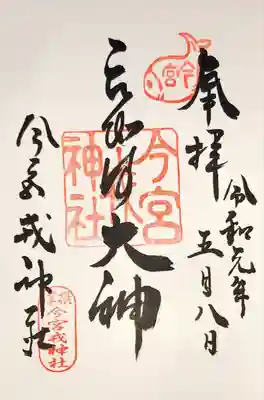 今宮
奉拝
令和元年
五月八日
大神
今宮
戎
神社
今宮戎神社
今宮戎神社